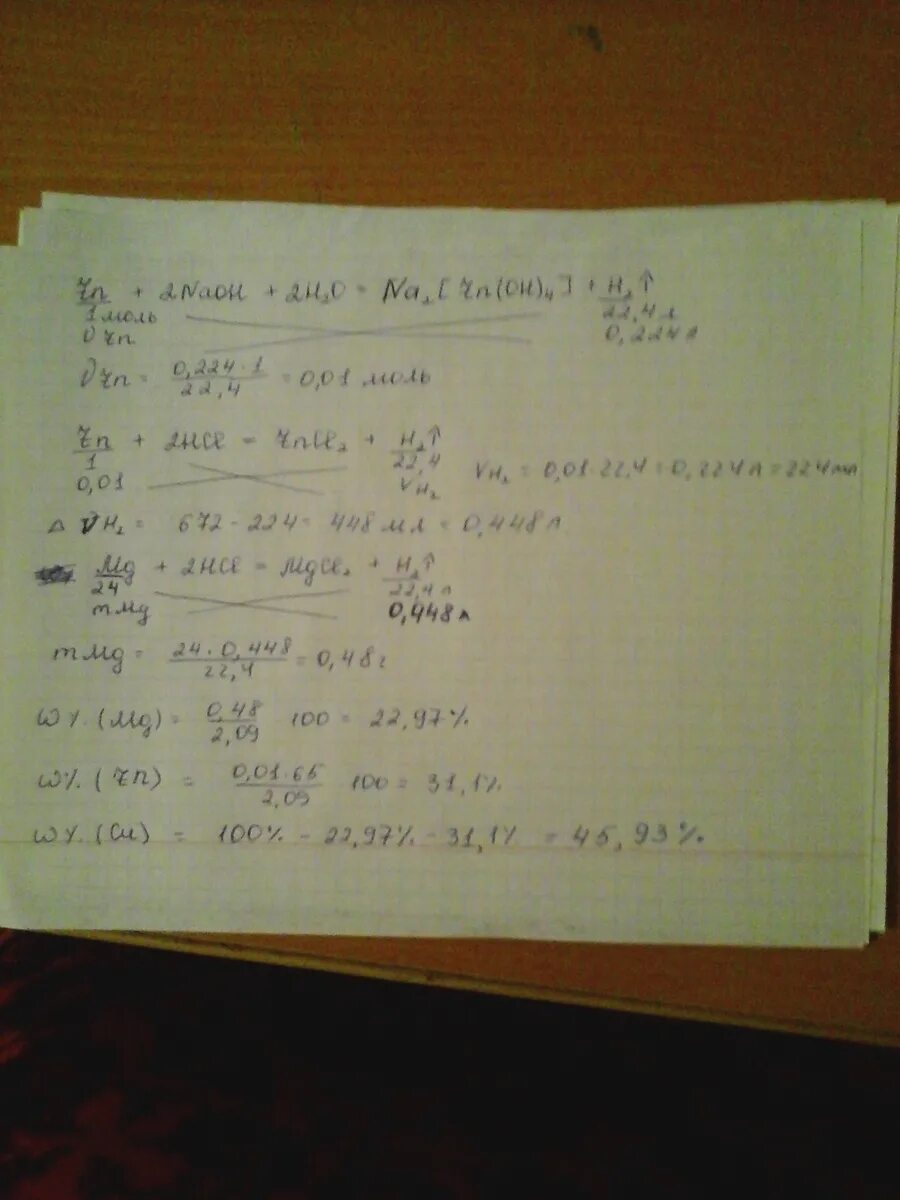 Zn + 2NaOH + 2H₂O = Na₂[Zn(OH)₄] + H₂↑
1 моль 22,4 л
νZn 0,224 л
νZn = 0,224·1 / 22,4 = 0,01 моль
Zn + 2HCl = ZnCl₂ + H₂↑
1 22,4
0,01 VH₂
VH₂ = 0,01·22,4 = 0,224 л = 224 мл
Δ VH₂ = 672 - 224 = 448 мл = 0,448 л
Mg + 2HCl = MgCl₂ + H₂↑
24 22,4 л
mMg 0,448 л
mMg = 24·0,448 / 22,4 = 0,48 г
ω%(Mg) = 0,48 / 2,09 100 = 22,97%
ω%(Zn) = 0,01·65 / 2,09 100 = 31,1%
ω%(Cu) = 100% - 22,97% - 31,1% = 45,93%